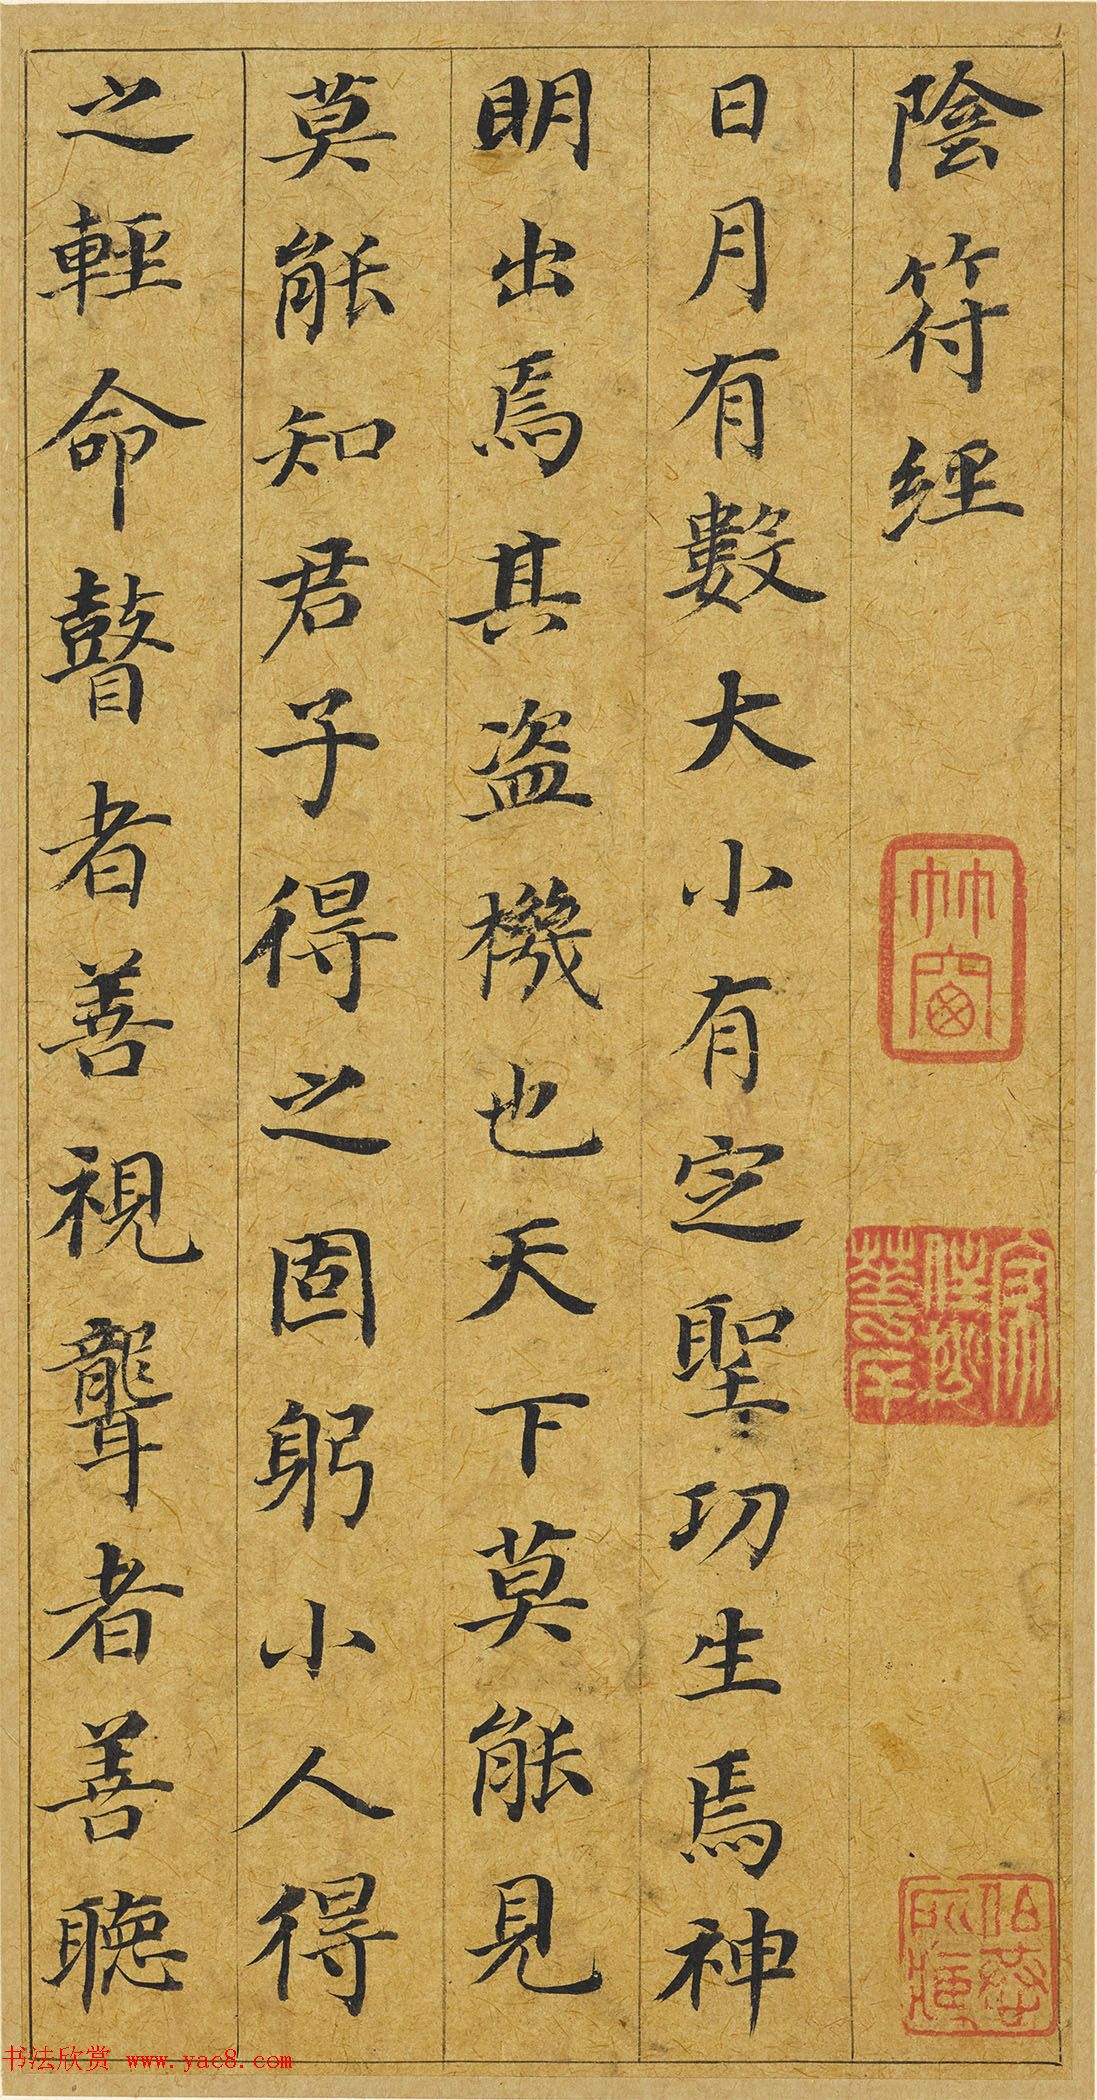 陰符經
日月有數大小有定聖功生焉神
明出焉其盜機也天下莫能見
莫能知君子得之固躬小人得
之輕命瞽者善視聾者善聽
竹窗
书法欣赏 www.yac8.com